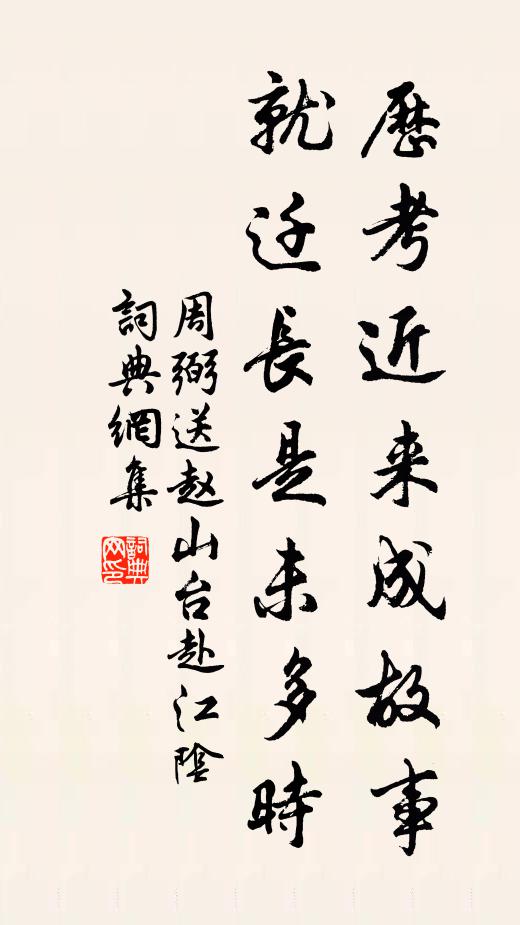 歷考近来成故事
就迁長是未多時
周弼送赵山台赴江陰
詞典網集
詞典网印